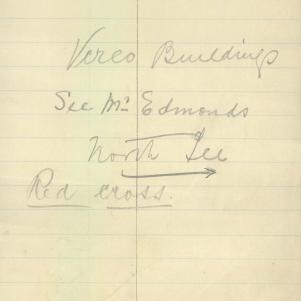 Verco Buildings
See Mr Edmonds
North Tce
Red cross.